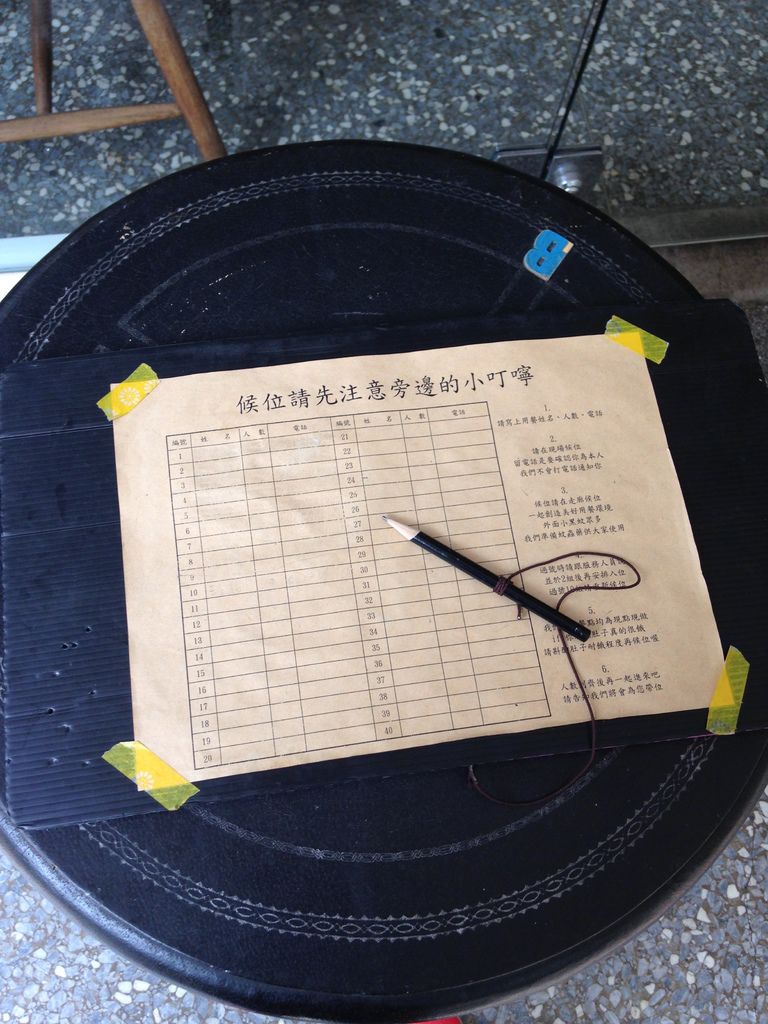 候位請先注意旁邊的小叮嚀
編號 姓 名 人 數 電話 編號 姓 名 人 數 電話
1 21
2 22
3 23
4 24
5 25
6 26
7 27
8 28
9 29
10 30
11 31
12 32
13 33
14 34
15 35
16 36
17 37
18 38
19 39
20 40
1.
請寫上用餐姓名、人數、電話
2.
請在現場候位
留電話是要確認你為本人
我們不會打電話通知你
3.
候位請在走廊候位
一起創造美好用餐環境
外面小黑蚊眾多
我們準備蚊蟲藥供大家使用
過號時請跟服務人員
並於2組後再安排入位
過號10組請重新候位
5.
餐點均為現點現做
肚子真的很餓
請斟酌肚子耐餓程度再候位喔
6.
人數到齊後再一起進來吧
請告知我們將會為您帶位
B